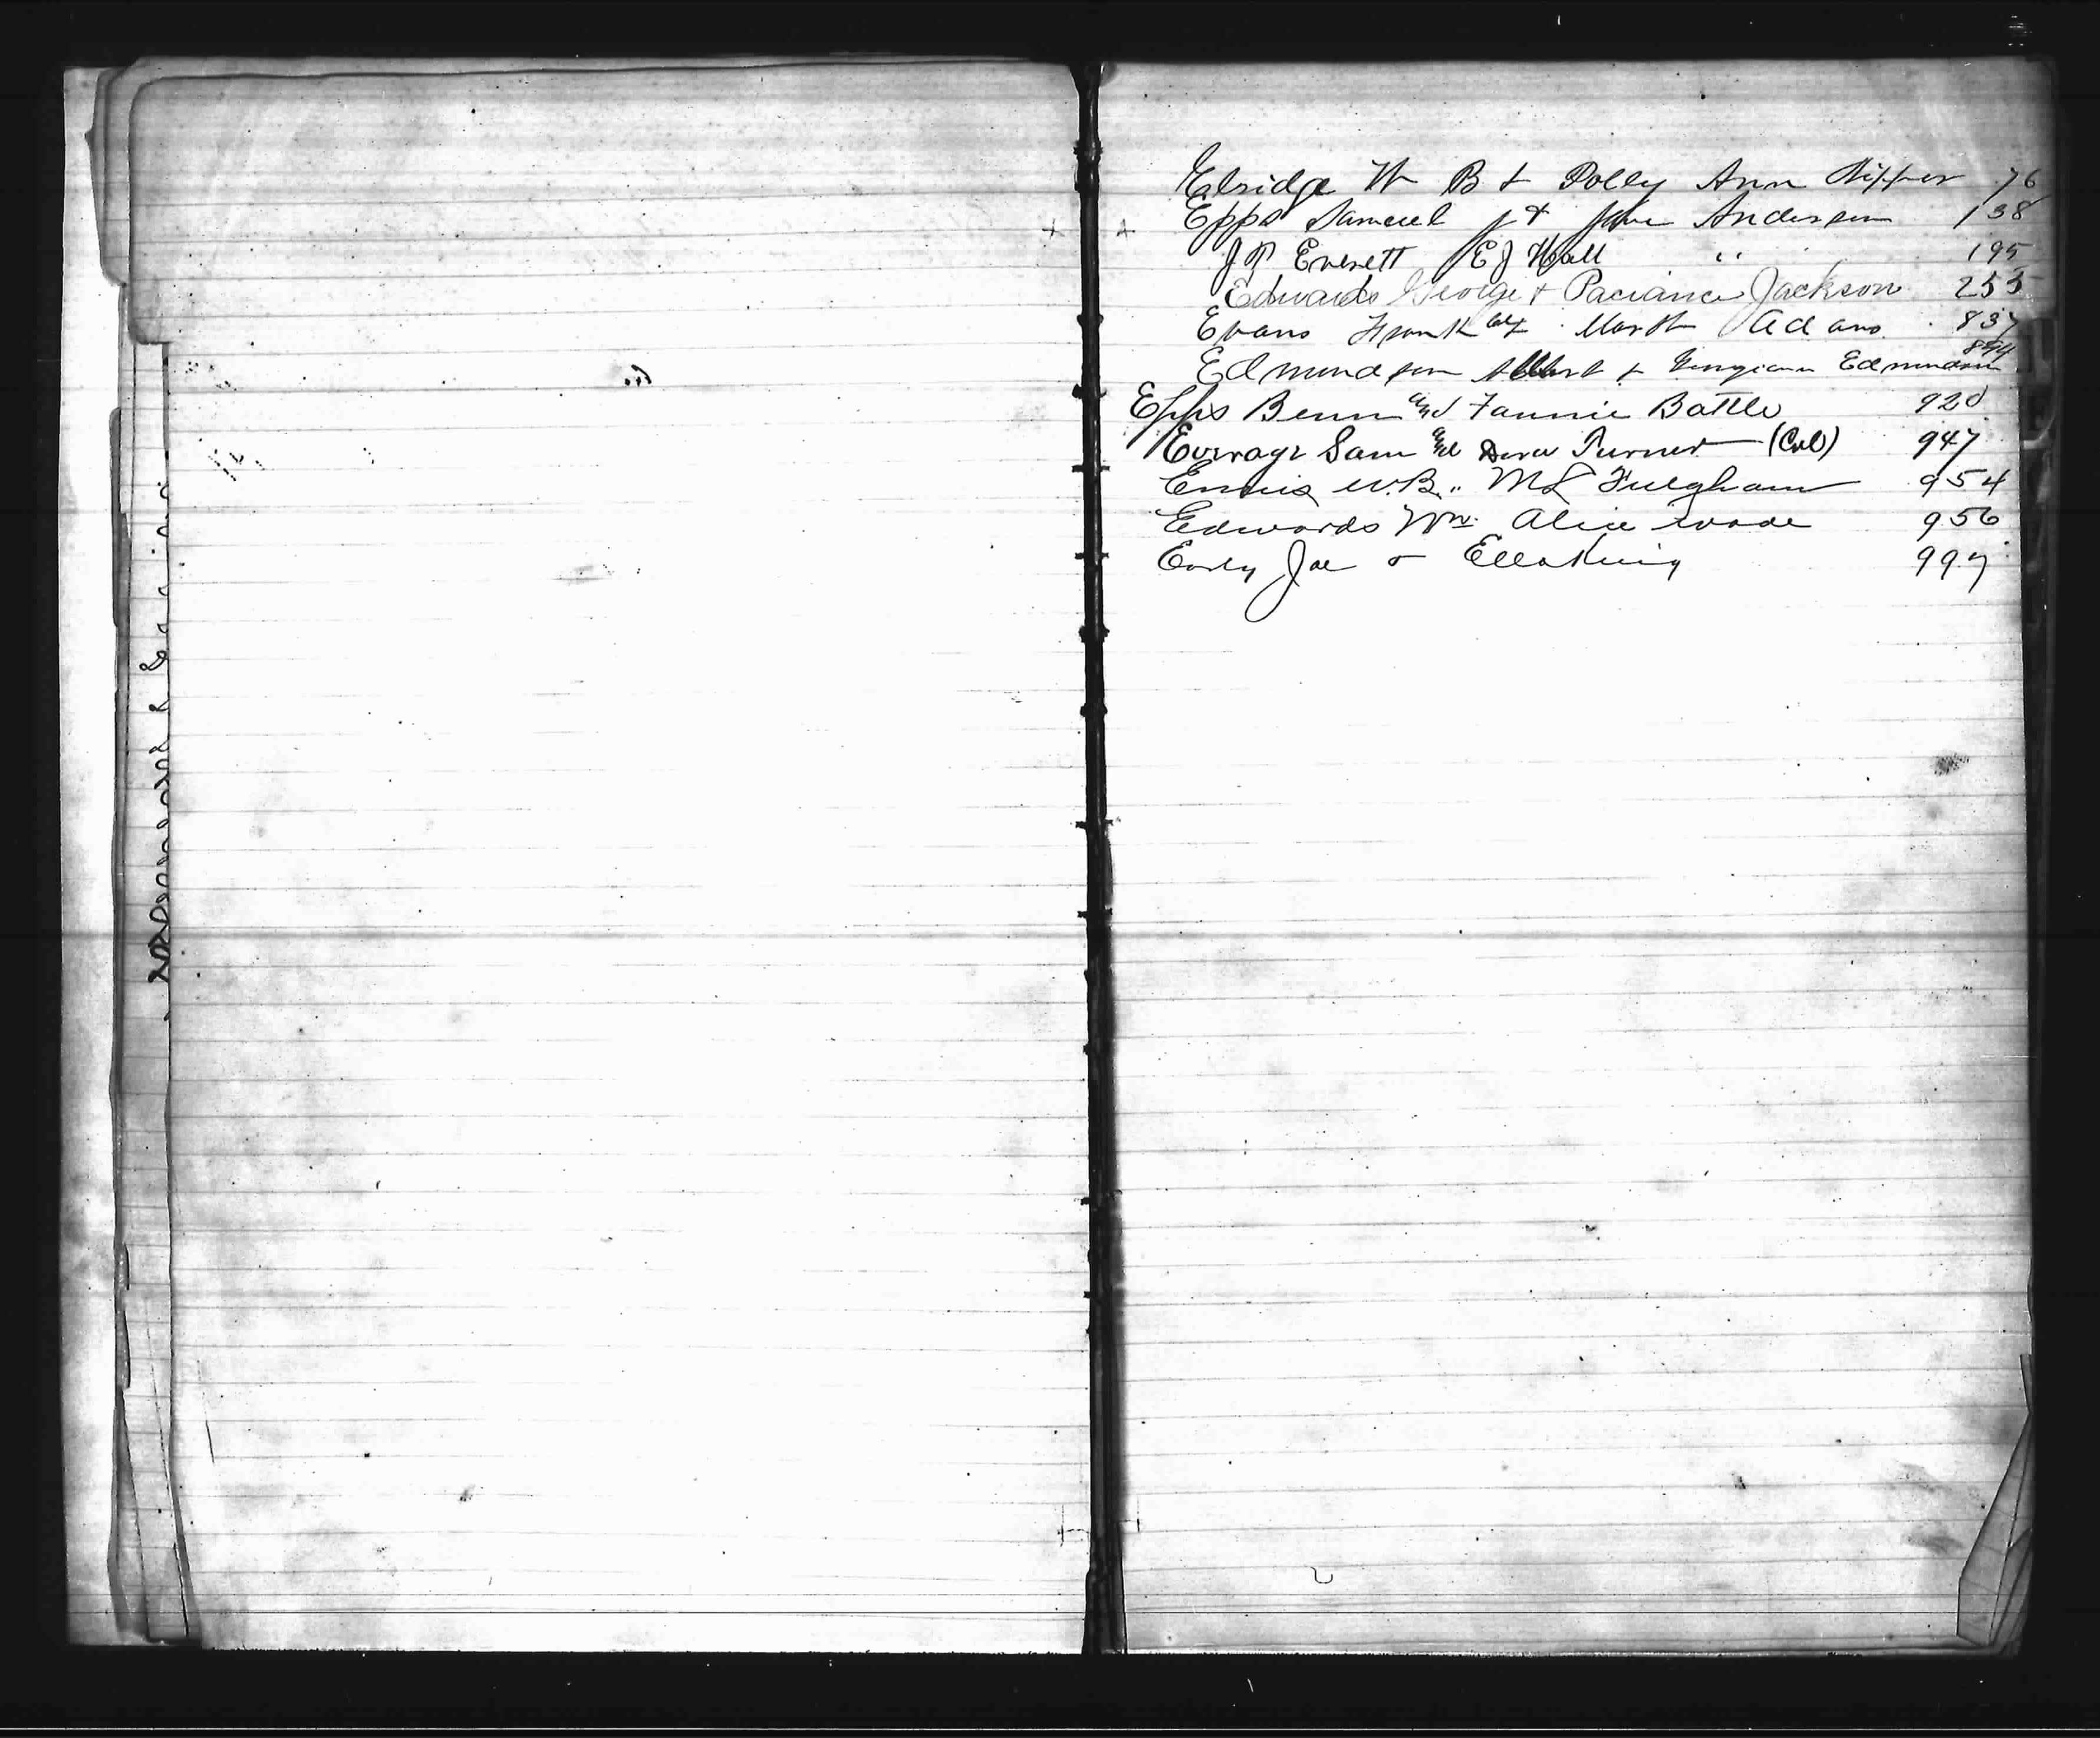 Elridge W B & Polly Ann 76
Epps Samuel J & Jane Anderson 138
J P Everett E J Hall " 195
Edwards George & Paciance Jackson 255
Evans Frank Col & Marth Adams 837
Edmundson Albert & Georgiann Edmundson 894
Epps Benn and Fannie Battle 920
Everage Sam and Dora Turner (Col) 947
Ennis W.B. " M L Fulgham 954
Edwards Wm. Alice Wade 956
Early Joe & Ella King 997